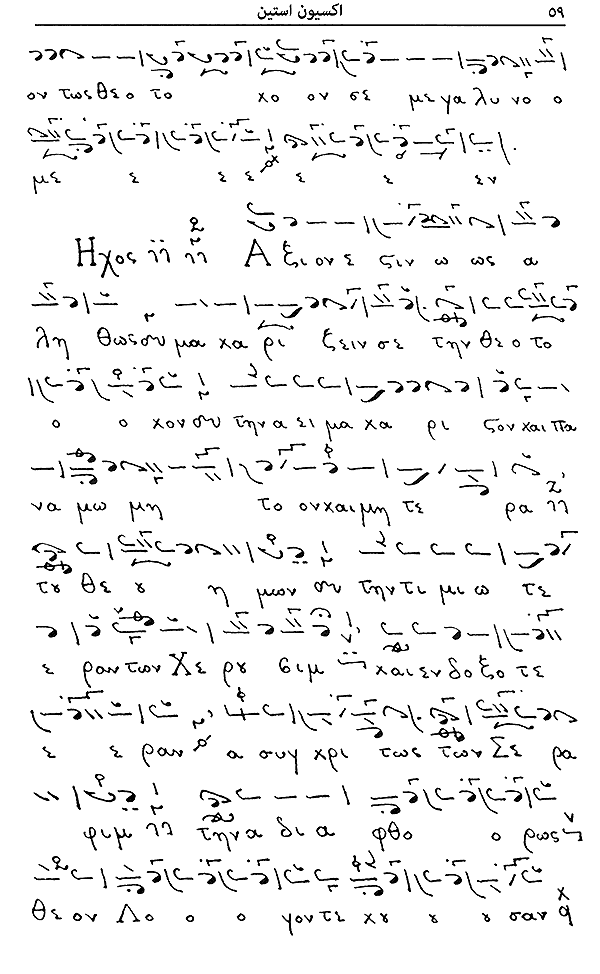 اكسيون استين ٥٩
ον τωςθεο το χο ον σε με γα λυ νο ο
με ε ε ε ε ε εν
Ηχος Α ξι ον ε ςιν ω ως α
λη θωςσυ μα κα ρι ζειν σε την θε ο το
ο ο κον συ την α ει μα κα ρι ςον και πα
να μω μη το ον και μη τε ρα
τȣ θε ȣ η μων συ την τι μι ω τε
ε ραν των Χε ρȣ βιμ και εν δο ξο τε
ε ε ραν α συγ κρι τως των Σε ρα
φιμ την α δι α φθο ο ρως
θε ον Λο ο ο γον τε κȣ ȣ ȣ σαν